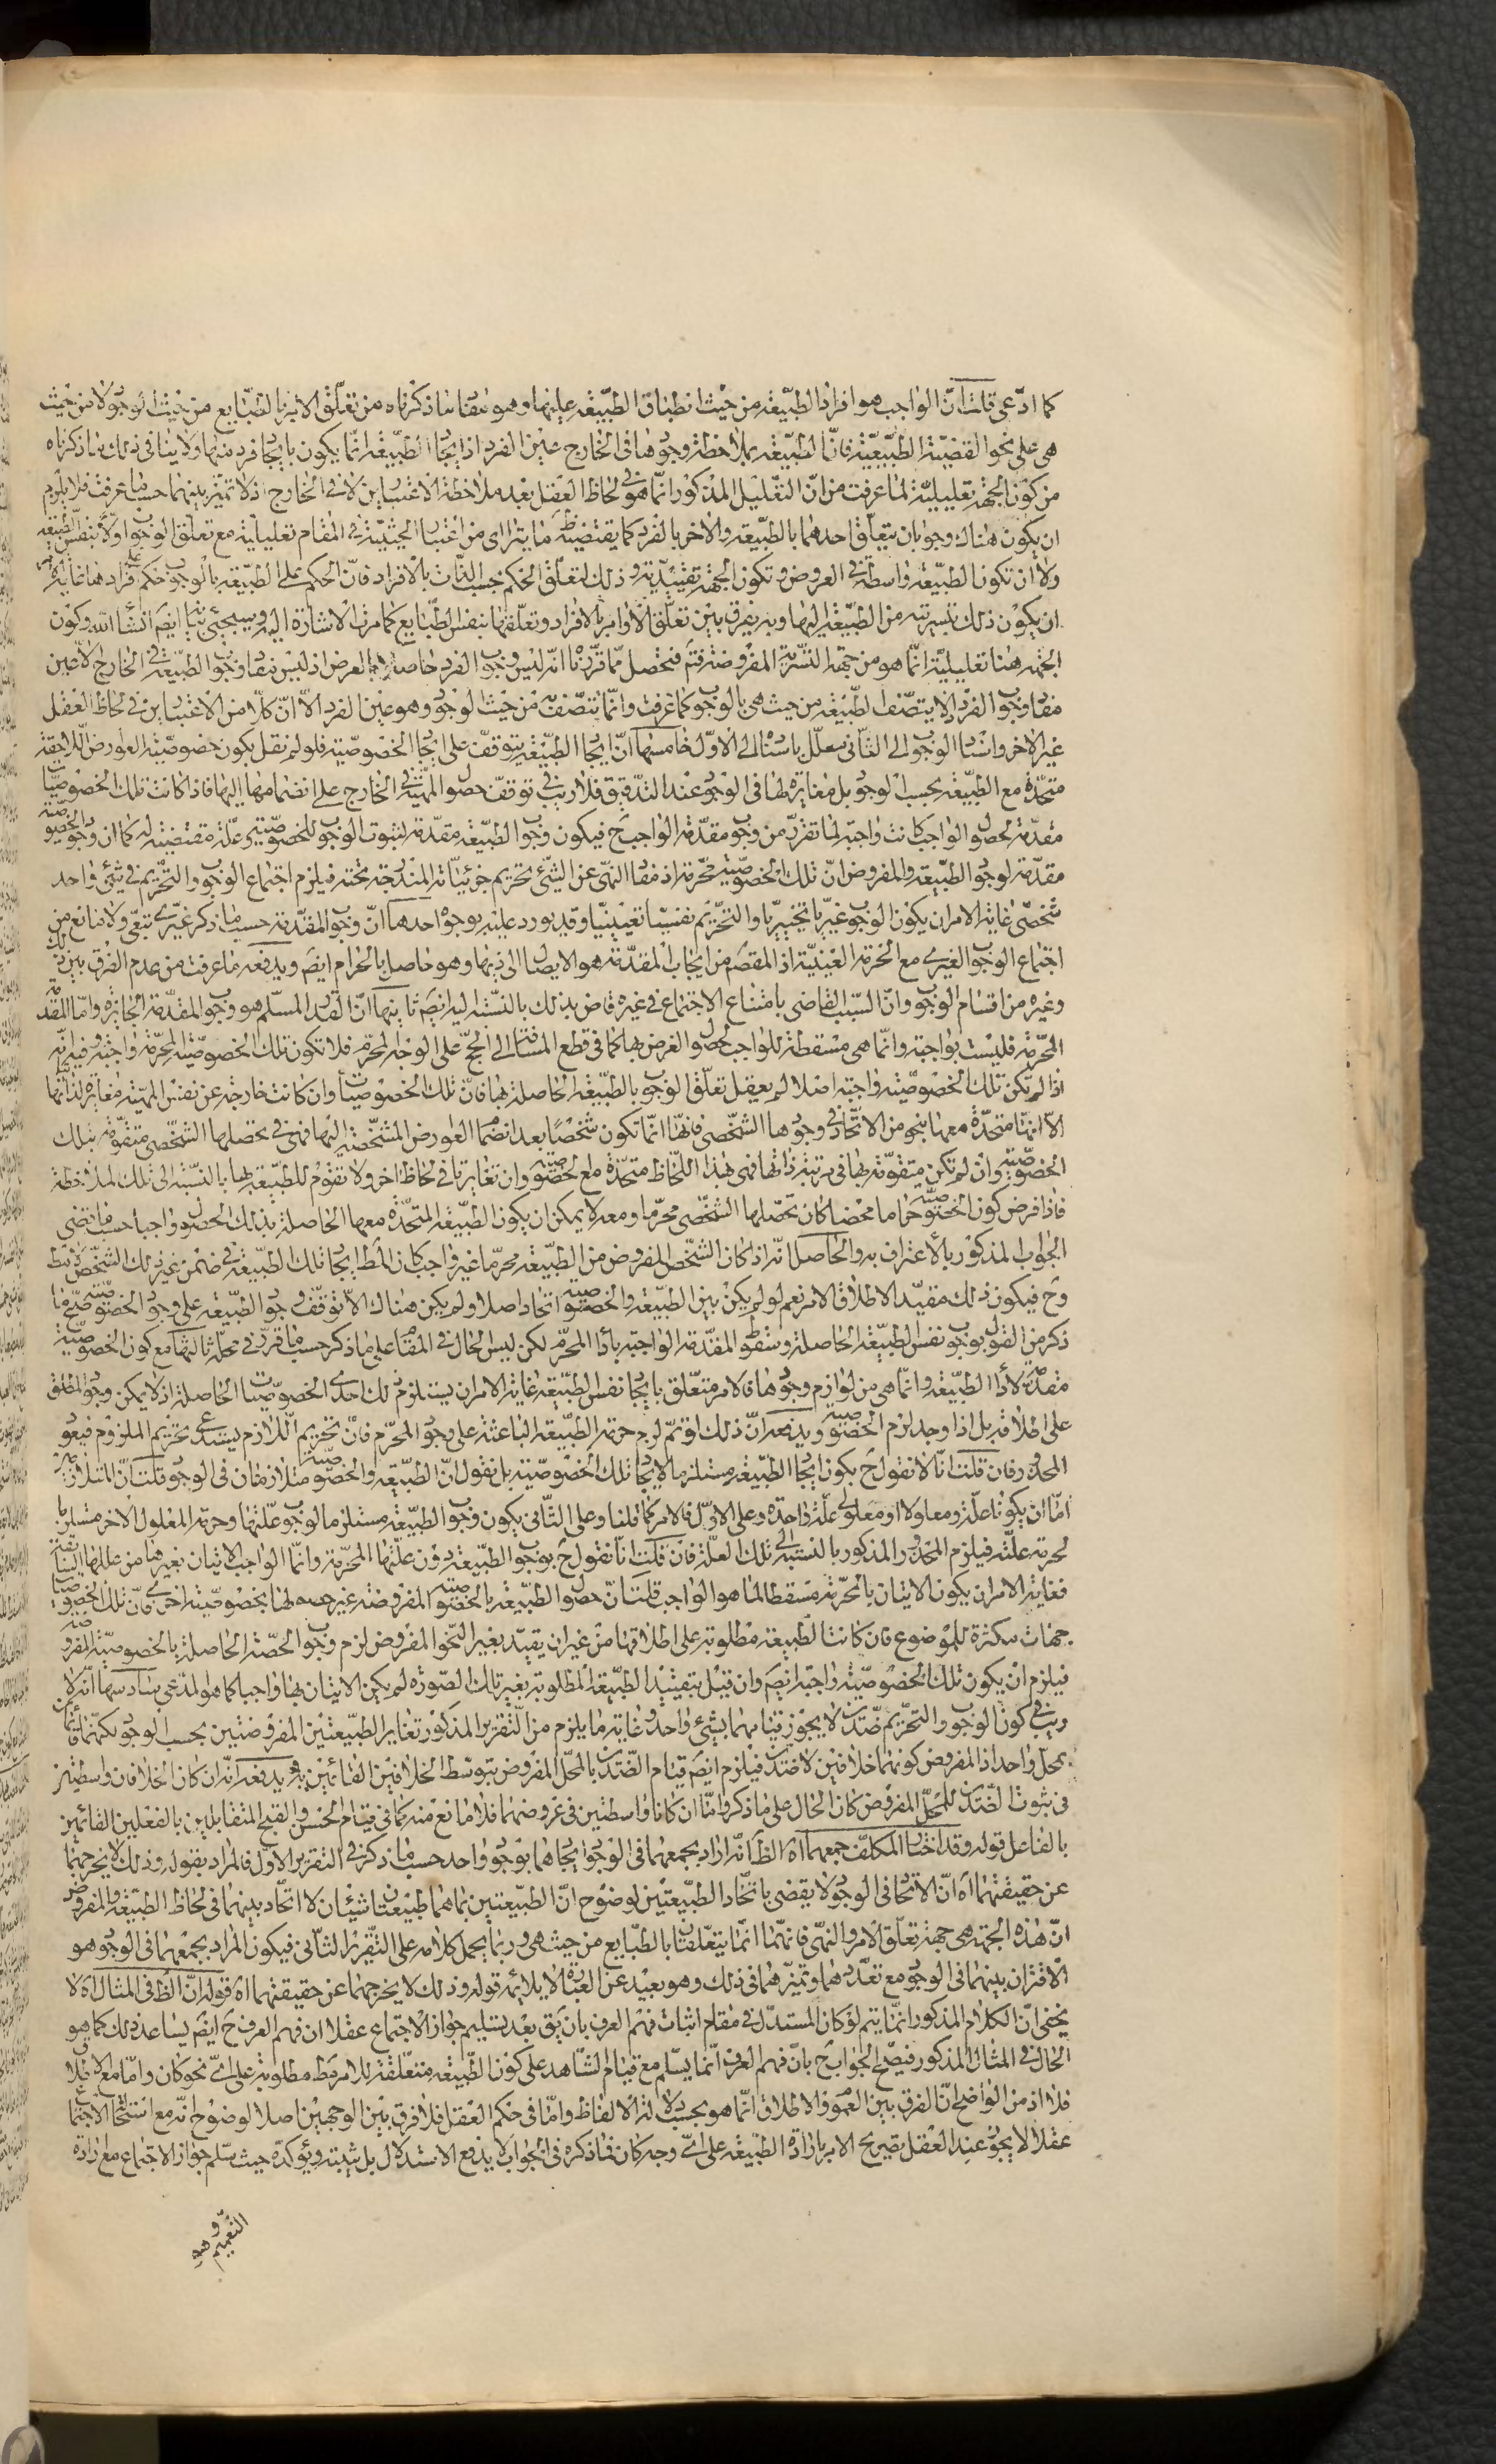 كما ادّعى قلت انّ الواجب هو افراد الطبيعة من حيث انطباق الطبيعة عليها وهو مفاد ما ذكرناه من تعلّق الامر بالطبايع من حيث الوجود لا من حيث
هى على نحو القضية الطبيعيّة فانّ الطبيعة بملاحظة وجودها فى الخارج عين الفرد اذ ايجاد الطبيعة انّما يكون بايجاد فرد منها ولا ينافى ذلك ما ذكرناه
من كون الجهة تعليليّة لما عرفت من انّ التعليل المذكور انّما هو فى لحاظ العقل بعد ملاحظة الاعتبارين لا فى الخارج اذ لا تميز بينهما حسبما عرفت فلا يلزم
ان يكون هناك وجوبان يتعلّق احدهما بالطبيعة والاخر بالفرد كما يقتضيه ظ ما يترااى من اعتبار الحيثيّة فى المقام تعليليّة مع تعلّق الوجوب اولا بنفس الطبيعة
ولا ان تكون الطبيعة واسطة فى العروض وتكون الجهة تقييديّة وذلك لتعلّق الحكم حسب الذات بالافراد فانّ الحكم على الطبيعة بالوجوب حكم على افرادها غاية الامر
ان يكون ذلك بتسريته من الطبيعة اليها وبه يفرق بين تعلّق الاوامر بالافراد وتعلّقها بنفس الطبايع كما مرت الاشارة اليه وسيجئ بيانه ايضا انشاء الله وكون
الجهة هنا تعليليّة انّما هو من جهة التسرية المفروضة فتم فتحصل ممّا قرّرنا انّه ليس وجوب الفرد حاصلا بالعرض اذ ليس مفاد وجوب الطبيعة فى الخارج الا عين
مفاد وجوب الفرد اذ لا يتّصف الطبيعة من حيث هى بالوجوب كما عرفت وانّما يتصف به من حيث الوجود وهو عين الفرد الا انّ كلّا من الاعتبارين فى لحاظ العقل
غير الاخر واسناد الوجوب الى الثانى معلّل باسناده الى الاوّل خامسها انّ ايجاد الطبيعة يتوقف على ايجاد الخصوصيّة فلو لم نقل بكون خصوصيّة العوارض اللاحقة
متحدة مع الطبيعة بحسب الوجود بل مغايرة لها فى الوجود عند التدقيق فلا ريب فى توقف حصول المهيّة فى الخارج على انضمامها اليها فاذا كانت تلك الخصوصيات
مقدّمة لحصول الواجب كانت واجبة لما تقرّر من وجوب مقدّمة الواجب ح فيكون وجوب الطبيعة مقدّمة لثبوت الوجوب للخصوصيّة وعلّة مقتضية له كما ان وجود الخصوصيّة
مقدّمة لوجود الطبيعة والمفروض انّ تلك الخصوصيّة محرّمة اذ مفاد النهى عن الشئ تحريم جزئيّاته المندرجة تحته فيلزم اجتماع الوجوب والتحريم فى شئ واحد
شخصى غاية الامر ان يكون الوجوب غيريّا تخييريّا والتحريم نفسيّا تعيينيّا وقد يورد عليه بوجوه احدها انّ وجوب المقدّمة حسب ما ذكر غيرى تبعى ولا مانع من
اجتماع الوجوب الغيرى مع الحرمة العينيّة اذ المقصد من ايجاب المقدّمة هو الايصال الى ذيها وهو حاصل بالحرام ايضا ويدفعه ما عرفت من عدم الفرق بين ذلك
وغيره من اقسام الوجوب وانّ السبب القاضى بامتناع الاجتماع فى غيره قاض بذلك بالنسبة اليه ايضا ثانيها انّ القدر المسلّم هو وجوب المقدّمة الجايزة وامّا المقدّمة
المحرّمة فليست بواجبة وانّما هى مسقطة للواجب لحصول الغرض بها كما فى قطع المسافة الى الحج على الوجه المحرّم فلا تكون تلك الخصوصيّة المحرّمة واجبة وفيه انّه
اذا لم تكن تلك الخصوصيّة واجبة اصلا لم يعقل تعلّق الوجوب بالطبيعة الحاصلة بها فانّ تلك الخصوصيات وان كانت خارجة عن نفس المهيّة مغايرة لذاتها
الا انّها متحدة معها بنحو من الاتحاد فى وجودها الشخصى فانّها انّما تكون شخصا بعد انضمام العوارض المشخصة اليها فهى فى تحصلها الشخصى متقومة بتلك
الخصوصيّة وان لم تكن متقومة بها فى مرتبة ذاتها فهى بهذا اللحاظ متحدة مع الخصوصيّة وان تغايرتا فى لحاظ اخر ولا تقوم للطبيعة بها بالنسبة الى تلك الملاحظة
فاذا فرض كون الخصوصيّة حراما محضا كان تحصلها الشخصى محرّما ومعه لا يمكن ان يكون الطبيعة المتحدة معها الحاصلة بذلك الحصول واجبا حسب ما يقضى
الجواب المذكور بالاعتراف به والحاصل انّه اذا كان الشخص المفروض من الطبيعة محرّما غير واجب كان المط ايجاد تلك الطبيعة فى ضمن غير ذلك الشخص
وح فيكون ذلك مقيّدا لاطلاق الامر نعم لو لم يكن بين الطبيعة والخصوصيّة اتحاد اصلا ولم يكن هناك الا توقف وجود الطبيعة على وجود الخصوصيّة صحّ ما
ذكر من القول بوجوب نفس الطبيعة الحاصلة وسقوط المقدّمة الواجبة باداء المحرّم لكن ليس الحال فى المقام على ما ذكر حسب ما قرّر فى محلّه ثالثها منع كون الخصوصيّة
مقدّمة لاداء الطبيعة وانّما هى من لوازم وجودها فالامر متعلّق بايجاد نفس الطبيعة غاية الامر ان يستلزم ذلك احدى الخصوصيات الحاصلة اذ لا يمكن وجود المطلق
على اطلاقه بل اذا وجد لزم الخصوصيّة ويدفعه انّ ذلك لو تمّ لزم حرمة الطبيعة الباعثة على وجود المحرّم فانّ تحريم اللازم يستدعى تحريم الملزوم فيعود
المحذور فان قلت انّا لا نقول ح بكون ايجاد الطبيعة مستلزما لايجاد تلك الخصوصيّة بل نقول انّ الطبيعة والخصوصيّة متلازمان فى الوجود قلت انّ المتلازمين
امّا ان يكونا علّة ومعلولا او معلولى علّة واحدة وعلى الاوّل فالامر كما قلنا وعلى الثانى يكون وجوب الطبيعة مستلزما لوجوب علّتها وحرمة المعلول الاخر مستلزما
لحرمة علّته فيلزم المحذور المذكور بالنسبة الى تلك العلّة فان قلت انّا نقول ح بوجوب الطبيعة دون علّتها المحرّمة وانّما الواجب الاتيان بغيرها من عللها السائغة
فغاية الامر ان يكون الاتيان بالمحرّمة مسقطا لما هو الواجب قلت انّ حصول الطبيعة بالخصوصيّة المفروضة غير حصولها بخصوصيّة اخرى فانّ تلك الخصوصيات
جهات مكثرة للموضوع فان كانت الطبيعة مطلوبة على اطلاقها من غير ان يقيّد بغير النحو المفروض لزم وجوب الحصّة الحاصلة بالخصوصيّة المفروضة
فيلزم ان يكون تلك الخصوصيّة واجبة ايضا وان قيل بتقييد الطبيعة المطلوبة بغير تلك الصورة لم يكن الاتيان بها واجبا كما هو المدعى سادسها انّه لا
ريب فى كون الوجوب والتحريم ضدّين لا يجوز قيامهما بشئ واحد وغاية ما يلزم من التقرير المذكور تغاير الطبيعتين المفروضتين بحسب الوجود لكنّهما قائمتان
بمحل واحد اذ المفروض كونهما خلافين لا ضدّين فيلزم ايضا قيام الضدّين بالمحلّ المفروض بتوسّط الخلافين القائمين به ويدفعه انّه ان كان الخلافان واسطتين
فى ثبوت الضدّين للمحلّ المفروض كان الحال على ما ذكر وامّا ان كانا واسطتين فى عروضهما فلا مانع منه كما فى قيام الحسن والقبح المتقابلين بالفعلين القائمين
بالفاعل قوله وقد اختار المكلّف جمعهما اه الظ انّه اراد بجمعهما فى الوجود ايجادهما بوجود واحد حسب ما ذكر فى التقرير الاوّل فالمراد بقوله وذلك لا يخرجهما
عن حقيقتهما اه انّ الاتحاد فى الوجود لا يقضى باتحاد الطبيعتين لوضوح انّ الطبيعتين بما هما طبيعتان شيئان لا اتحاد بينهما فى لحاظ الطبيعة والمفروض
انّ هذه الجهة هى جهة تعلّق الامر والنهى فانّهما انّما يتعلّقان بالطبايع من حيث هى وربما يحمل كلامه على التقرير الثانى فيكون المراد بجمعهما فى الوجود هو
الاقتران بينهما فى الوجود مع تعدّدهما وتميزهما فى ذلك وهو بعيد عن العبارة لا يلائمه قوله وذلك لا يخرجهما عن حقيقتهما اه قوله انّ الظ فى المثال اه لا
يخفى انّ الكلام المذكور انّما يتم لو كان المستدلّ فى مقام اثبات فهم العرف بان يق بعد تسليم جواز الاجتماع عقلا ان فهم العرف ح ايضا يساعد ذلك كما هو
الحال فى المثال المذكور فيصحّ الجواب ح بانّ فهم العرف انّما يسلّم مع قيام الشاهد على كون الطبيعة متعلّقة للامر فقط مطلوبة على اىّ نحو كان وامّا مع الاطلاق
فلا اذ من الواضح انّ الفرق بين العموم والاطلاق انّما هو بحسب دلالة الالفاظ وامّا فى حكم العقل فلا فرق بين الوجهين اصلا لوضوح انّه مع استحالة الاجتماع
عقلا لا يجوز عند العقل تصريح الامر بارادة الطبيعة على اىّ وجه كان فما ذكره فى الجواب لا يدفع الاستدلال بل يثبته ويؤكده حيث سلّم جواز الاجتماع مع ارادة
التعميم وهو